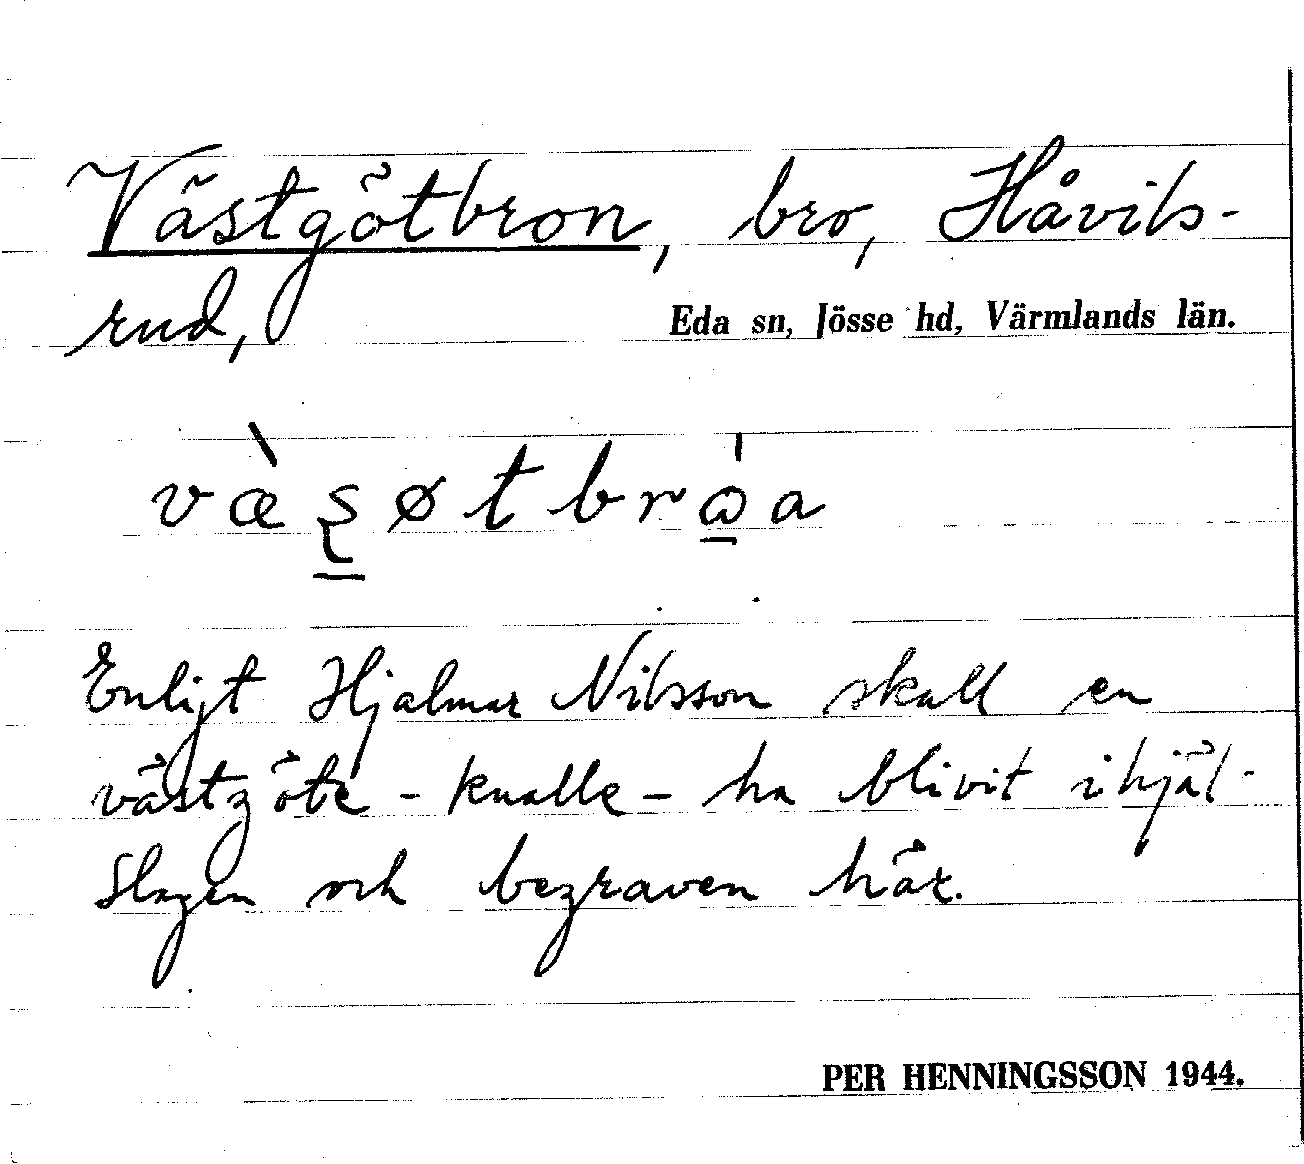 Västgötbron, bro, Håvils-
rud,
Eda sn, Jösse hd, Värmlands län.
væ̀ʂøtbrɷ̀a
Enligt Hjalmar Nilsson skall en
västgöte - knalle - ha blivit ihjäl-
slagen och begraven här.
PER HENNINGSSON 1944.